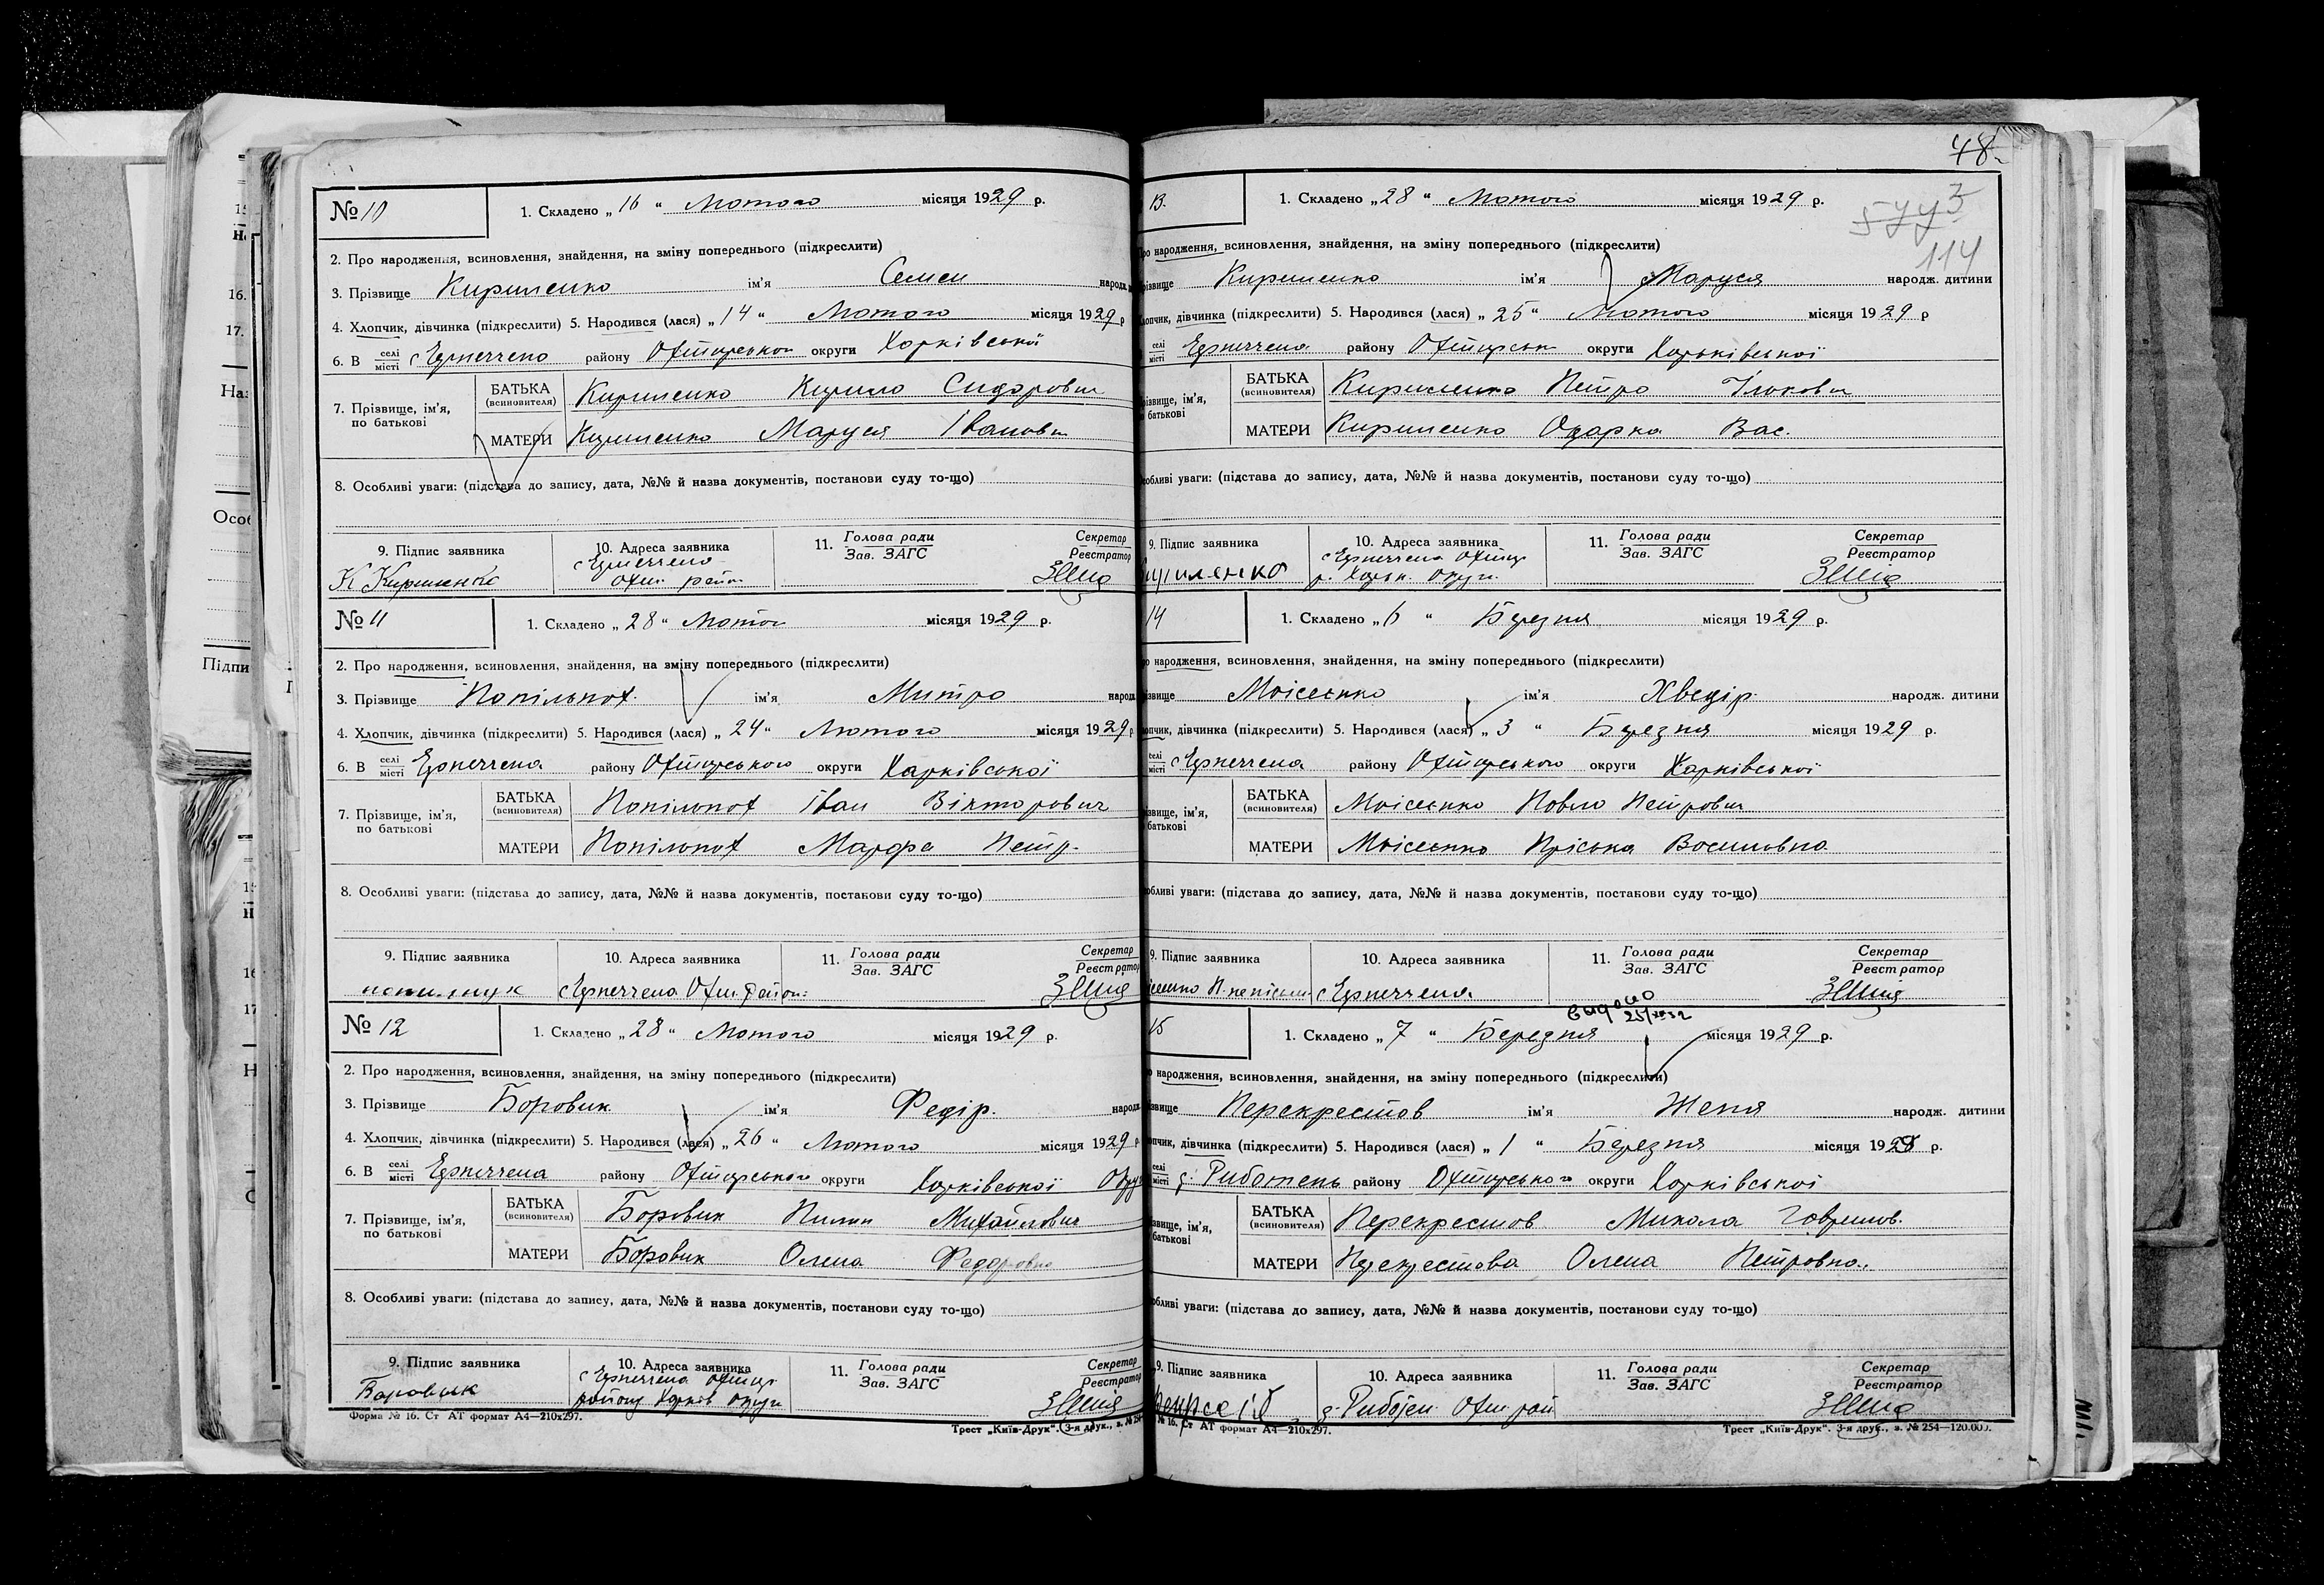 № 10
1. Складено „ 16 “ Лютого місяця 1929 р.
2. Про народження, всиновлення, знайдення, на зміну попереднього (підкреслити)
3. Прізвище Кириленко ім'я Семен народж
4. Хлопчик, дівчинка (підкреслити) 5. Народився (лася) „ 14 “ Лютого місяця 1929 р
6. В селі місті району округи Харківської
7. Прізвище, ім'я, по батькові
БАТЬКА (всиновителя) Кириленко Кирило Сидорович
МАТЕРИ Кириленко Маруся Івановн
8. Особливі уваги: (підстава до запису, дата, №№ й назва документів, постанови суду то-що)
9. Підпис заявника 10. Адреса заявника 11. Голова ради Зав. ЗАГС Секретар Реєстратор
К Кириленко
№ 11
1. Складено „ 28 “ місяця 1929 р.
2. Про народження, всиновлення, знайдення, на зміну попереднього (підкреслити)
3. Прізвище ім'я Митро народж
4. Хлопчик, дівчинка (підкреслити) 5. Народився (лася) „ 24 “ Лютого місяця 1929 р
6. В селі місті району Охтирського округи Харківської
7. Прізвище, ім'я, по батькові
БАТЬКА (всиновителя) Іван Вікторович
МАТЕРИ Марфа Петр.
8. Особливі уваги: (підстава до запису, дата, №№ й назва документів, постанови суду то-що)
9. Підпис заявника 10. Адреса заявника 11. Голова ради Зав. ЗАГС Секретар Реєстратор
№ 12
1. Складено „ 28 “ Лютого місяця 1929 р.
2. Про народження, всиновлення, знайдення, на зміну попереднього (підкреслити)
3. Прізвище Боровик ім'я Федір. народж
4. Хлопчик, дівчинка (підкреслити) 5. Народився (лася) „ 26 “ Лютого місяця 1929 р
6. В селі місті району Охтирського округи Харківської
7. Прізвище, ім'я, по батькові
БАТЬКА (всиновителя) Боровик Пилип Михайлович
МАТЕРИ Боровик Олена Федоровна
8. Особливі уваги: (підстава до запису, дата, №№ й назва документів, постанови суду то-що)
9. Підпис заявника 10. Адреса заявника 11. Голова ради Зав. ЗАГС Секретар Реєстратор
Боровик
Форма № 16. Ст АТ формат А4—210х297.
Трест „Київ-Друк“. 3-я друк., з. № 254
48
114
13.
1. Складено „ 28 “ Лютого місяця 1929 р.
народження, всиновлення, знайдення, на зміну попереднього (підкреслити)
Кириленко ім'я Маруся народж. дитини
дівчинка (підкреслити) 5. Народився (лася) „ 25 “ Лютого місяця 1929 р
селі місті району округи Харьківської
ім'я, батькові
БАТЬКА (всиновителя) Кириленко Петро
МАТЕРИ Кириленко Одарка Вас.
уваги: (підстава до запису, дата, №№ й назва документів, постанови суду то-що)
9. Підпис заявника 10. Адреса заявника 11. Голова ради Зав. ЗАГС Секретар Реєстратор
14
1. Складено „ 6 “ Березня місяця 1929 р.
народження, всиновлення, знайдення, на зміну попереднього (підкреслити)
Моісеєнко ім'я Хведір. народж. дитини
дівчинка (підкреслити) 5. Народився (лася) „ 3 “ Березня місяця 1929 р.
селі місті району Охтирського округи Харківської
ім'я, батькові
БАТЬКА (всиновителя) Моісеєнко Павло Петрович
МАТЕРИ Моісеєнко Пріська Василовна
уваги: (підстава до запису, дата, №№ й назва документів, постанови суду то-що)
9. Підпис заявника 10. Адреса заявника 11. Голова ради Зав. ЗАГС Секретар Реєстратор
15
1. Складено „ 7 “ Березня місяця 1929 р.
народження, всиновлення, знайдення, на зміну попереднього (підкреслити)
Перекрестов ім'я Женя народж. дитини
дівчинка (підкреслити) 5. Народився (лася) „ 1 “ Березня місяця 19 р.
селі місті району Охтирського округи Харківської
ім'я, батькові
БАТЬКА (всиновителя) Перекрестов Микола Гаврилов.
МАТЕРИ Перекрестова Олена Петровна
уваги: (підстава до запису, дата, №№ й назва документів, постанови суду то-що)
9. Підпис заявника 10. Адреса заявника 11. Голова ради Зав. ЗАГС Секретар Реєстратор
№ 16. Ст АТ формат А4—210х297.
Трест „Київ-Друк“. 3-я друк., з. № 254—120.000.